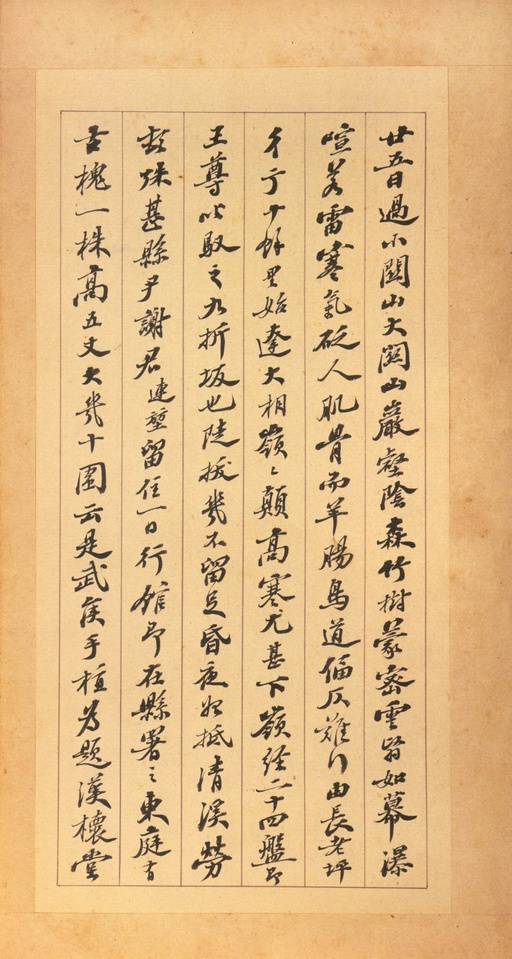 廿五日過小關山大關山巖壑陰森竹樹蒙密雲翳如幕瀑
喧若雷寒氣砭人肌骨而羊腸鳥道偪仄難行由長老坪
彳亍十餘里始達大相嶺〻顛高寒尤甚下嶺經二十四盤即
王尊叱馭之九折坂也陡拔幾不留足昏夜始抵清溪勞
殊甚縣尹謝君連堃留住一日行館即在縣署之東庭有
古槐一株高五丈大幾十圍云是武侯手植為題漢槐堂